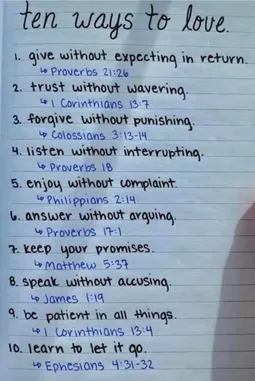 ten ways to love.
1. give without expecting in return.
↳ Proverbs 21:26
2. trust without wavering.
↳ 1 Corinthians 13:7
3. forgive without punishing.
↳ Colossians 3:13-14
4. listen without interrupting.
↳ Proverbs 18
5. enjoy without complaint.
↳ Philippians 2:14
6. answer without arguing.
↳ Proverbs 17:1
7. keep your promises.
↳ Matthew 5:37
8. speak without accusing.
↳ James 1:19
9. be patient in all things.
↳ 1 Corinthians 13:4
10. learn to let it go.
↳ Ephesians 4:31-32